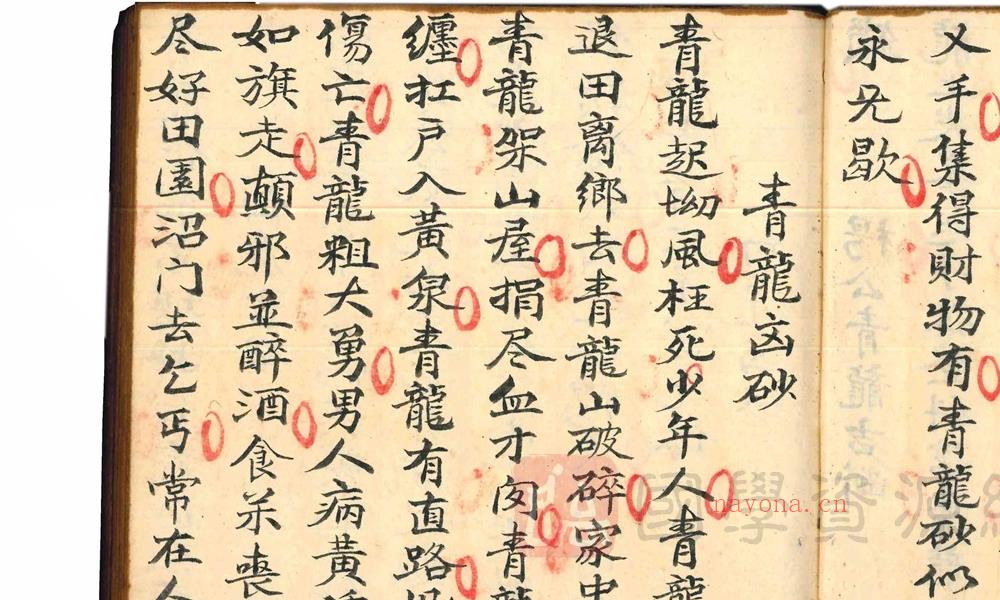 又手集得財物有青龍砂似
永兄歇
青龍凶砂
青龍起坳風枉死少年人青龍
退田离鄉去青龍山破碎家中
青龍架山屋捐尽血才囱青龍
缠扛戸入黃泉青龍有直路
傷亡青龍粗大舅男人病黃
如旗走顛邪並醉酒食茶喪
尽好田園沼门去乞丐常在人
國學資源
nayona.cn